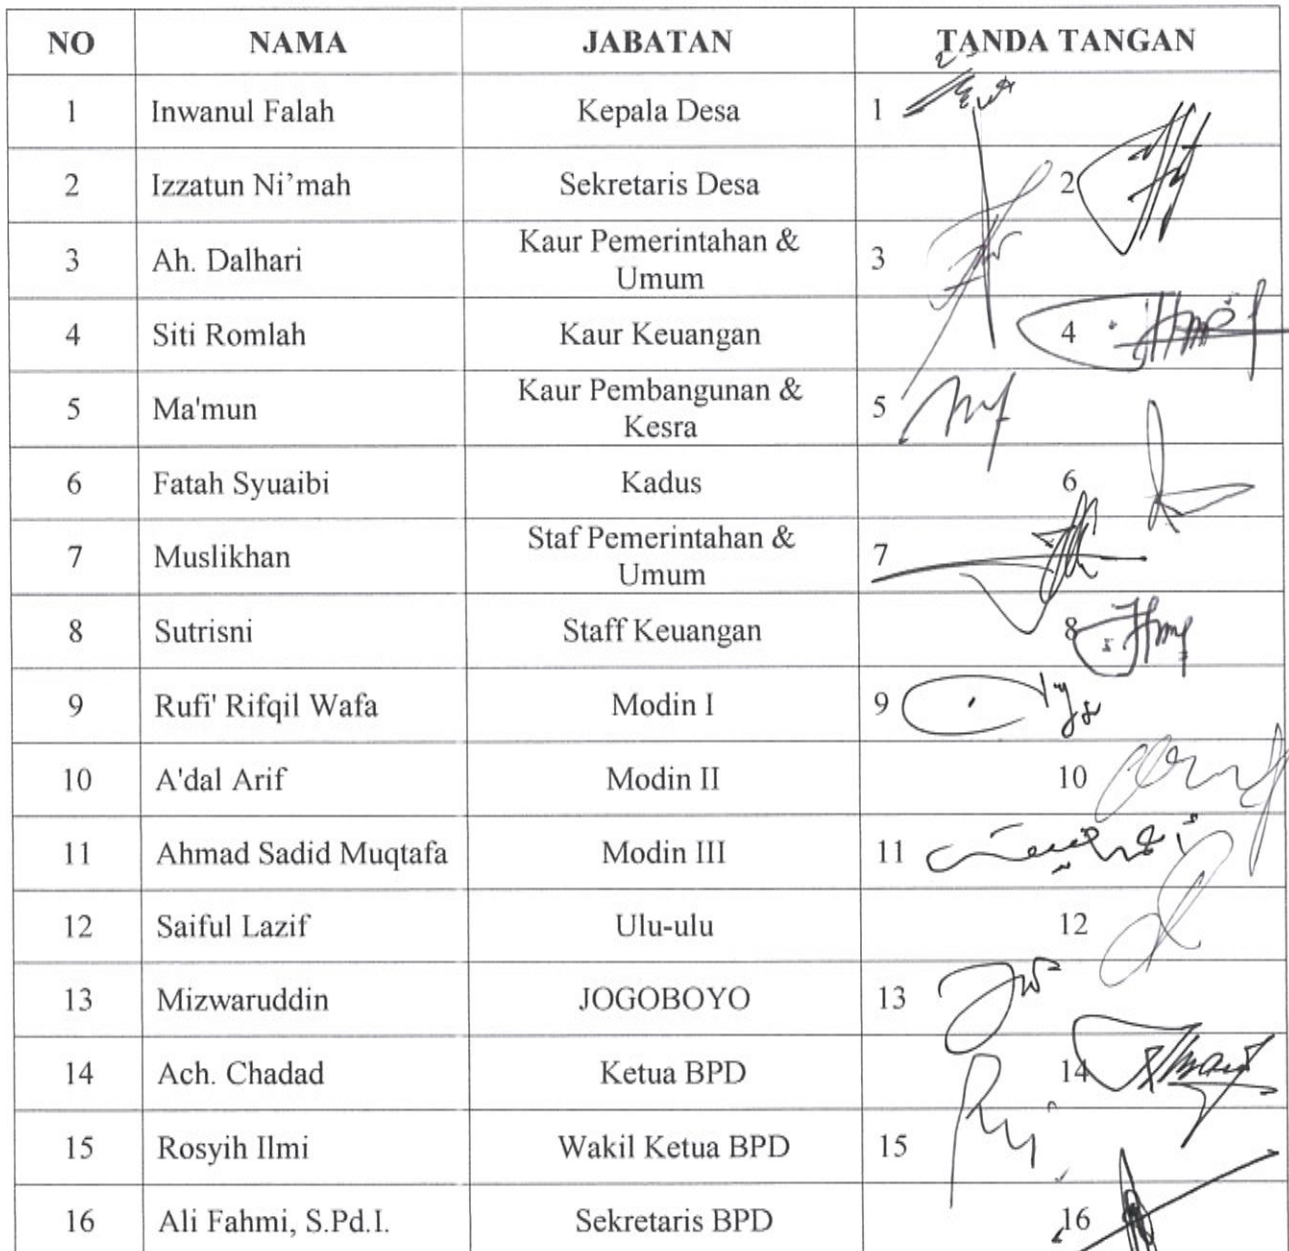 NO NAMA JABATAN TANDA TANGAN
1 Inwanul Falah Kepala Desa 1
2 Izzatun Ni’mah Sekretaris Desa 2
3 Ah. Dalhari Kaur Pemerintahan & Umum 3
4 Siti Romlah Kaur Keuangan 4
5 Ma'mun Kaur Pembangunan & Kesra 5
6 Fatah Syuaibi Kadus 6
7 Muslikhan Staf Pemerintahan & Umum 7
8 Sutrisni Staff Keuangan 8
9 Rufi' Rifqil Wafa Modin I 9
10 A'dal Arif Modin II 10
11 Ahmad Sadid Muqtafa Modin III 11
12 Saiful Lazif Ulu-ulu 12
13 Mizwaruddin JOGOBOYO 13
14 Ach. Chadad Ketua BPD 14
15 Rosyih Ilmi Wakil Ketua BPD 15
16 Ali Fahmi, S.Pd.I. Sekretaris BPD 16